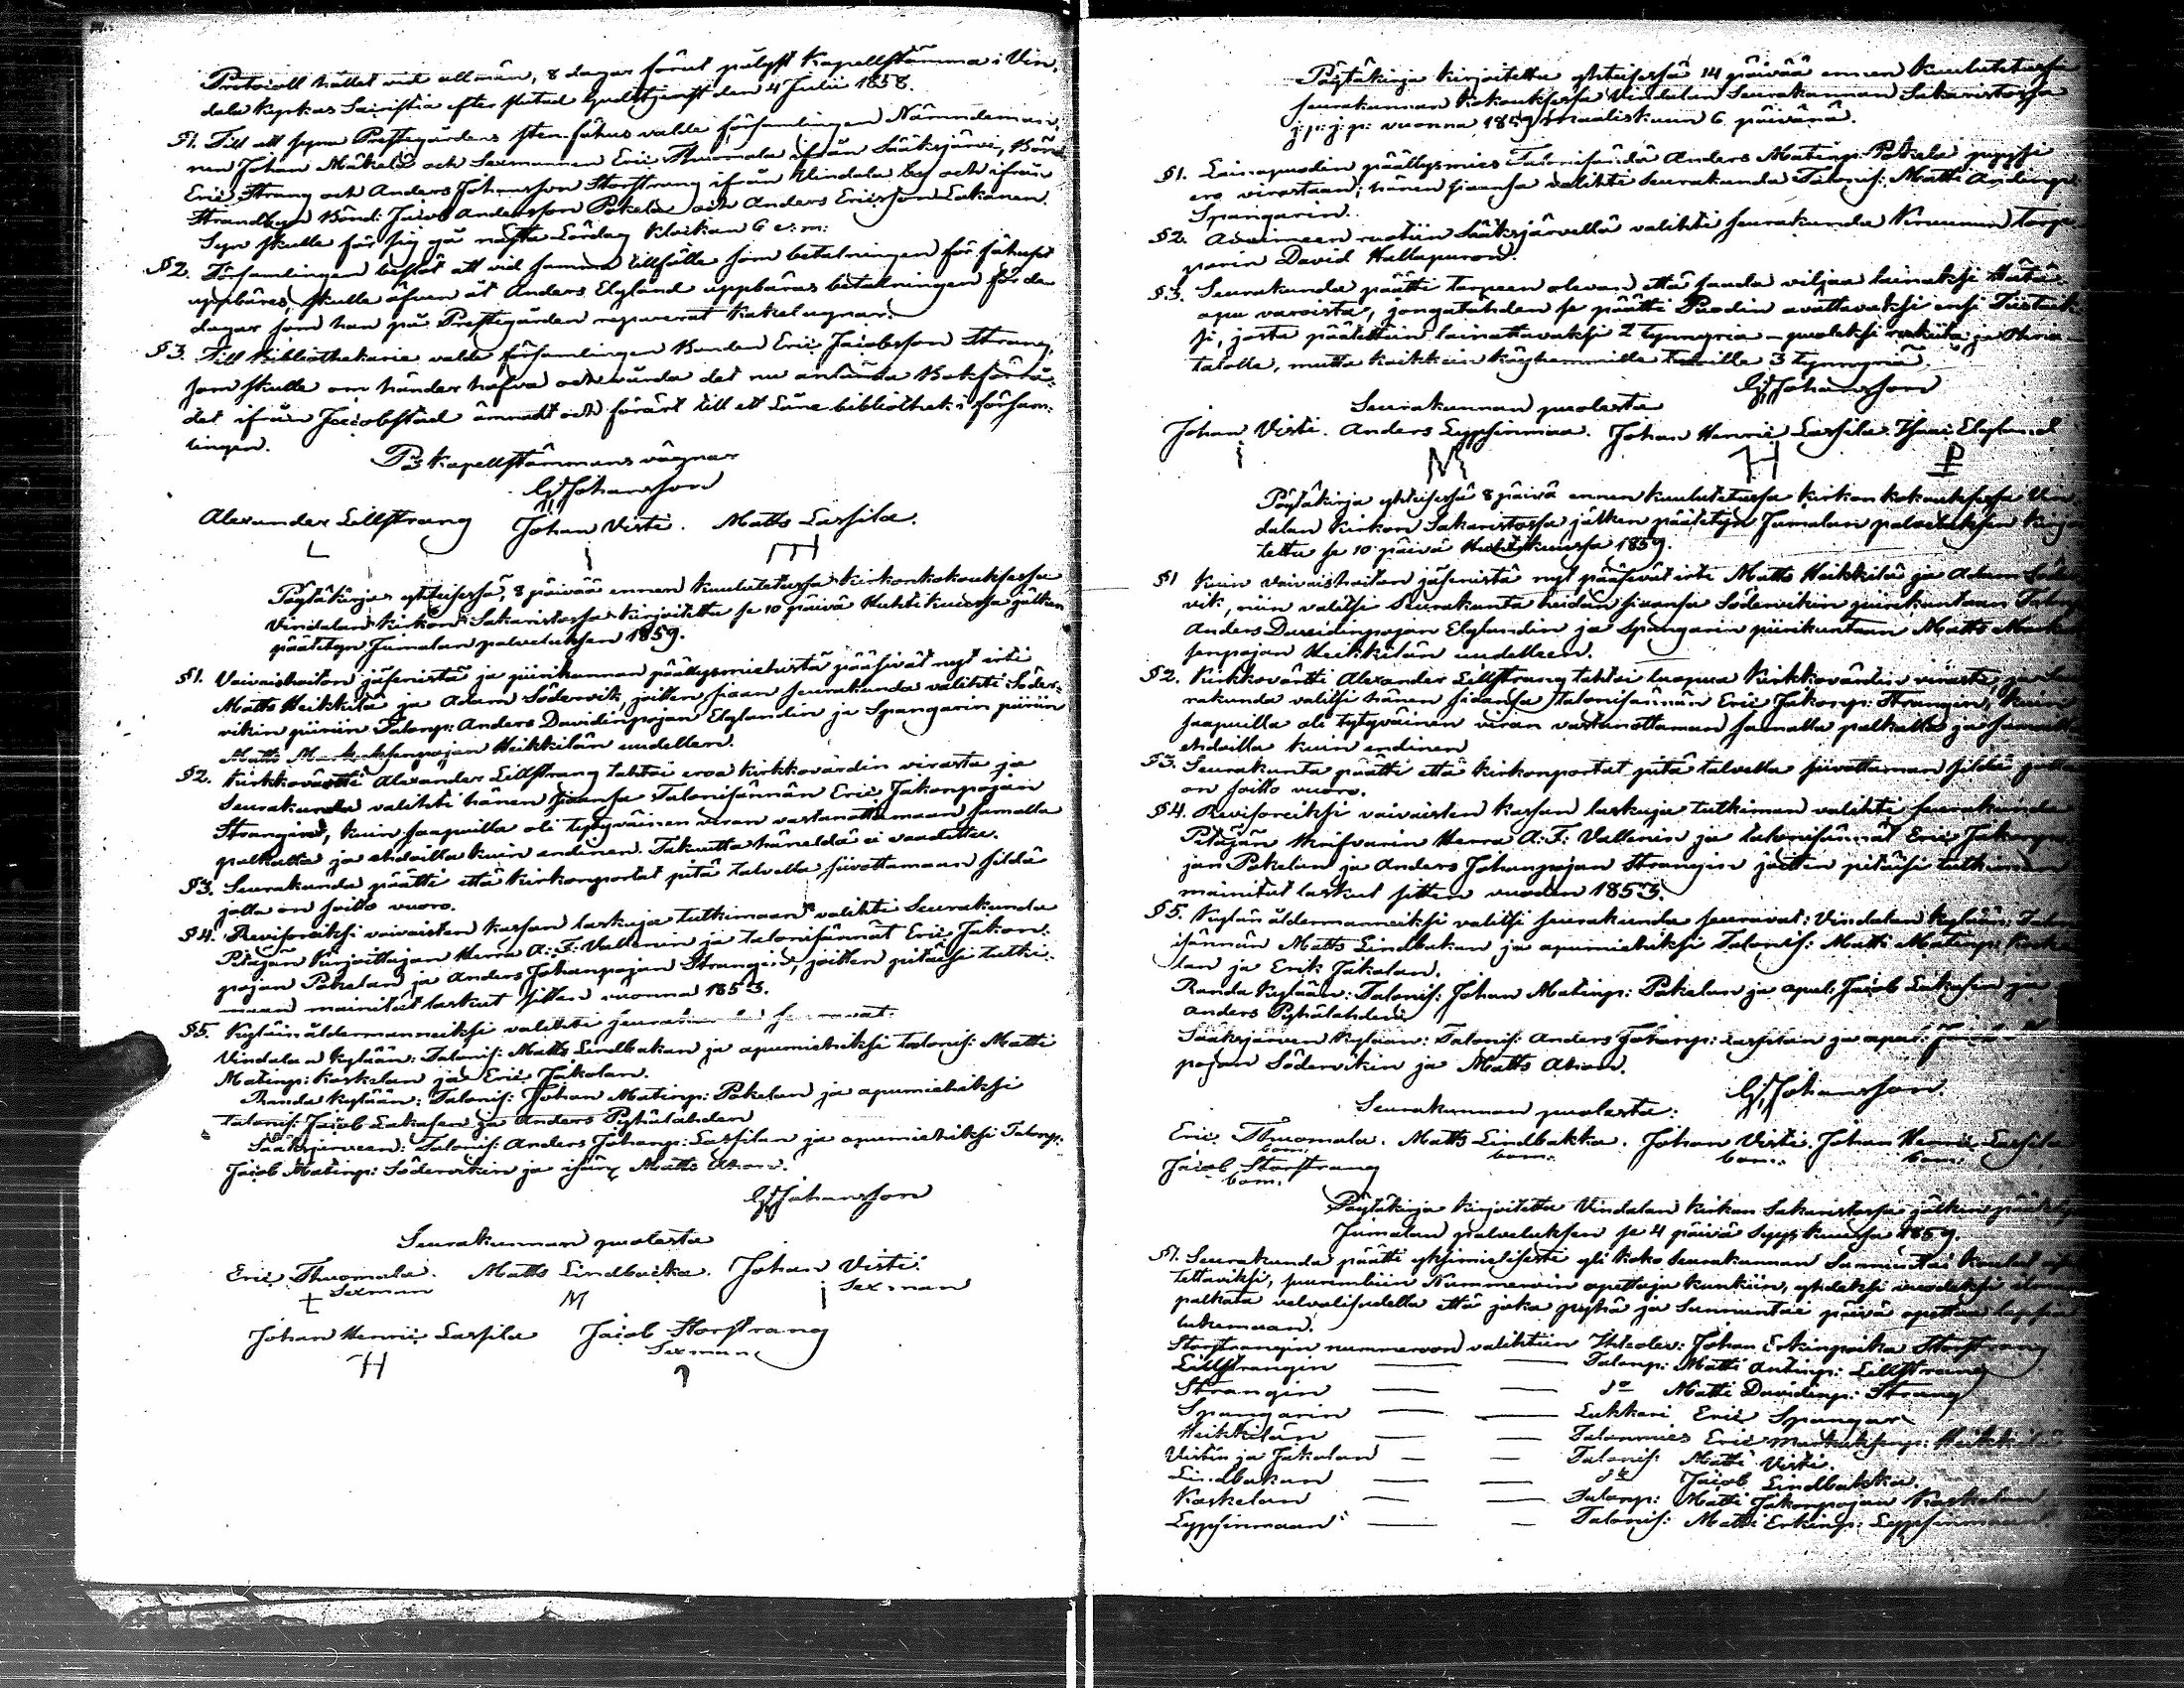 Protocoll hållet vid allmän, 8 dagar förut pålyst Kapellstämma i Vin-
dala kyrkas Sacristia efter slutad Gudstjenst den 4 Julii 1858.
§1. Till att syna Prestegårdens sten fähus valde församlingen Nämndeman-
nen Johan Mäkelä och Sexmannen Eric Thuomala ifrån Sääksjärvi, Bönd.
Eric Strang och Anders Johansson Storstrang ifrån Vindala by och ifrån
Strandbyn Bönd: Jacob Andersson Pokela och Anders Ericsson Lakanen.
Syn skulle för sig gå nästa Lördag klockan 6 e: m:
§2. Församlingen beslöt att vid samma tillfälle som betalningen för fähuset
uppbäres, skulle äfven åt Anders Elglund uppbäras betalningen för de
dagar som han på Prestegården reparerat kakelugnar.
§3. Till Bibliothekarie valde församlingen Bonden Eric Jacobsson Strang,
som skulle om händer hafva och vårda det nu anlända Bokförrå-
det ifrån Jacobstad ämnadt och förärt till ett Lånebibliothek i försam-
lingen.
På Kapellstämmans vägnar
G Johansson
Alexander Lillstrang Johan Visti. Matts Lassila.
Pöytäkirja yhteisessä, 8 päivää ennen kuulutetussa Kirkonkokouksessa
Vindalan kirkon Sakaristossa kirjoitettu se 10 päivä Huhtikuussa jälken
päätetyn Jumalan palveluksen 1859.
§1. Vaivaishoiton jäsenistä ja piirikunnan päällysmiehistä pääsivät nyt irti
Matts Heikkilä ja Adam Södervik, joitten siaan seurakunda valihti Söder-
vikin piiriin Talonp: Anders Davidinpojan Elglundin ja Spangarin piiriin
Matts Markuksenpojan Heikkilän uudellen.
§2. Kirkkoväärtti Alexander Lillstrang tahtoi erota kirkkovärdin virasta ja
Seurakunda valihti hänen siaansa Talonisännän Eric Jakonpojan
Strangin, kuin saapuilla oli tytyväinen viran vastanottamaan samalla
palkalla ja ehdoilla kuin endinen. Takuutta häneldä ei vaadittu.
§3. Seurakunda päätti että kirkonportat pitä talvella siivottamaan sildä
jolla on soitto vuoro.
§4. Revisoreiksi vaivaisten kassan laskuja tutkimaan valihti Seurakunda
Pitäjän Kirjoittajan Herra A: F: Vallenin ja talonisännät Eric Jakon-
pojan Pokelan ja Anders Johanpojan Strangin, joitten pitäisi tutki-
maan mainitut laskut sitten vuonna 1853.
§5. Kyläin äldermanneiksi valihti seurakunda seuravat:
Vindalan kylään: Talonis: Matts Lindbakan ja apumiehiksi talonis: Matti
Matinp: Koskelan ja Eric Jakolan.
Randa kylään: Talonis: Johan Matinp: Pokelan ja apumiehiksi
talonis: Jacob Lukasen ja Anders Pyhälahden
Sääksjärveen: Talonis: Anders Johanp: Lassilan ja apumiehiksi Talonp:
Jacob Matinp: Södervikin ja isän Matts Ahon.
G Johansson
Seurakunnan puolesta
Eric Thuomala. Matts Lindbacka. Johan Visti.
Sexman M Sexman
Johan Henric Lassila Jacob Storstrang
H Sexman
Pöytäkirja kirjoitettu yhteisessä 14 päivää ennen kuulutetussa
seurakunnan kokouksessa Vindalan Seurakunnan Sakaristossa
j: p: j: p: vuonna 1859 maaliskuun 6 päivänä.
§1. Lainapuodin päällysmies Talonisändä Anders Matinp: Pokela pyysi
ero virastaan; hänen siaansa valihti seurakunda Talonis: Matti Andinp:
Spangarin.
§2. Avoimeen ruotiin Sääksjärvellä valihti seurakunda Kruunun torp-
parin David Hallapuron.
§3. Seurakunda päätti tarpeen olevan että saada viljaa lainaksi Hätä-
apu varoista, jongatähden se päätti Puodin avattavaksi ensi Tiistaik-
si, josta päätettiin lainattavaksi 2 tynnyria puoleksi rukiita ja Ohria
talolle, mutta kaikkein köyhemmille taloille 3 tynnyriä.
G Johansson
Seurakunnan puolesta
Johan Visti. Anders Lypsinmaa. Johan Henric Lassila. Isaac Elglund
M H P
Pöytäkirja yhteisessä 8 päivä ennen kuulutetussa kirkon kokouksessa Vin-
dalan kirkon Sakaristossa jälken päätetyn Jumalan palveluksen kirjoi-
tettu se 10 päivä Huhtikuussa 1859.
§1 Kuin vaivaishoiton jäsenistä nyt pääsevät irti Matts Heikkilä ja Adam Söder-
vik, niin valitsi Seurakunta heidän siaansa Södervikin piirikuntaan Talonp:
Anders Davidinpojan Elglundin ja Spangarin piirikuntaan Matts Markuk-
senpojan Heikkilän uudelleen.
§2. Kirkkovärtti Alexander Lillstrang tahtoi luopua Kirkkovärdin virasta, ja Seu-
rakunda valitsi hänen siaansa talonisännän Eric Jakonp: Strangin, kuin
saapuilla oli tytyväinen viran vastanottaman samalla palkalla ja samoilla
ehdoilla kuin endinen
§3. Seurakunta päätti että kirkonportat pitä talvella siivottaman sildä jolla
on soitto vuoro.
§4. Revisoreiksi vaivaisten kassan laskuja tutkiman valihti seurakunda
Pitäjän Kraifvarin Herra A: F: Vallenin ja talonisännät Eric Jakonpo-
jan Pokelan ja Anders Johanpojan Strangin joitten pitäisi tutkiman
mainitut laskut sitten vuoden 1853.
§5. Kylän äldermanneiksi valitsi seurakunda seuravat: Vindalan kylään: Talon-
isännän Matts Lindbakan ja apumiehiksi Talonis: Matti Matinp: Koske-
lan ja Erik Jakolan.
Randa kylään: Talonis: Johan Matinp: Pokelan ja apul: Jacob Lukasen ja
Anders Pyhälahden
Sääksjärven kylään: Talonis: Anders Johanp: Lassilan ja apul: Jacob
pojan Södervikin ja Matts Ahon.
G Johansson.
Seurakunnan puolesta:
Eric Thuomala. Matts Lindbakka. Johan Visti. Johan Henric Lassila
bom. bom. bom. bom.
Jacob Storstrang
bom.
Pöytäkirja kirjoitettu Vindalan kirkon Sakaristossa jälken päätetyn
Jumalan palveluksen se 4 päivä Syyskuussa 1859.
§1. Seurakunda päätti yksimielisesti yli koko seurakunnan Sunnuntai koulut
tettaviksi, sekä palkata velvolisudella että joka pyhä ja Sunnuntai päivä opettaa lapsia
lukemaan.
Storstrangin nummeroon valihtiin Itsp: Johan Erkinpoika Storstrang
Lillstrangin — — Talonp: Matti Antinp: Lillstrang
Strangin — — do Matti Davidinp: Strang
Spangarin — — Lukkari Eric Spangar
Heikkilän — — Talonmies Eric Markuksenp: Heikkilä
Vistin ja Jakolan — — Talonis: Matti Visti.
Lindbakan — — do Jacob Lindbakka.
Koskelan — — Talonp: Matti Jakonpojan Koskelan
Lypsinmaan — — Talonis: Matti Erkinp: Lypsinmaan